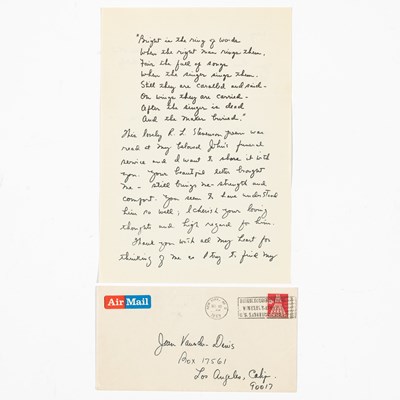 "Bright is the ring of words
When the right man rings them,
Fair the fall of songs
When the singer sings them.
Still they are carolled and said -
On wings they are carried -
After the singer is dead
And the maker buried."
This lovely R. L. Stevenson poem was
read at my beloved John's funeral
service and I want to share it with
you. Your beautiful letter brought
me - still brings me - strength and
comfort. You seem to have understood
him so well; I cherish your loving
thoughts and high regard for him.
Thank you with all my heart for
thinking of me as I try to find my
Air Mail
Joan
Box 17561
Los Angeles, Calif.
90017